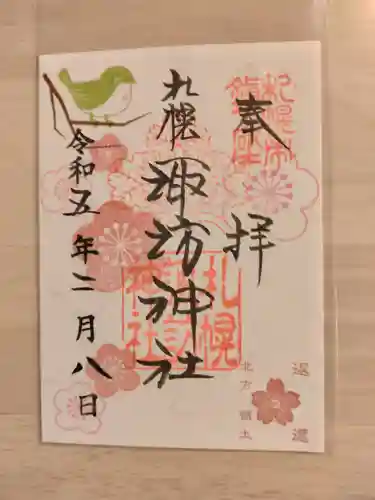 奉拝
札幌
諏訪神社
令和五年二月八日
札幌市
鎮座
札幌
諏訪
神社
返還
北方領土